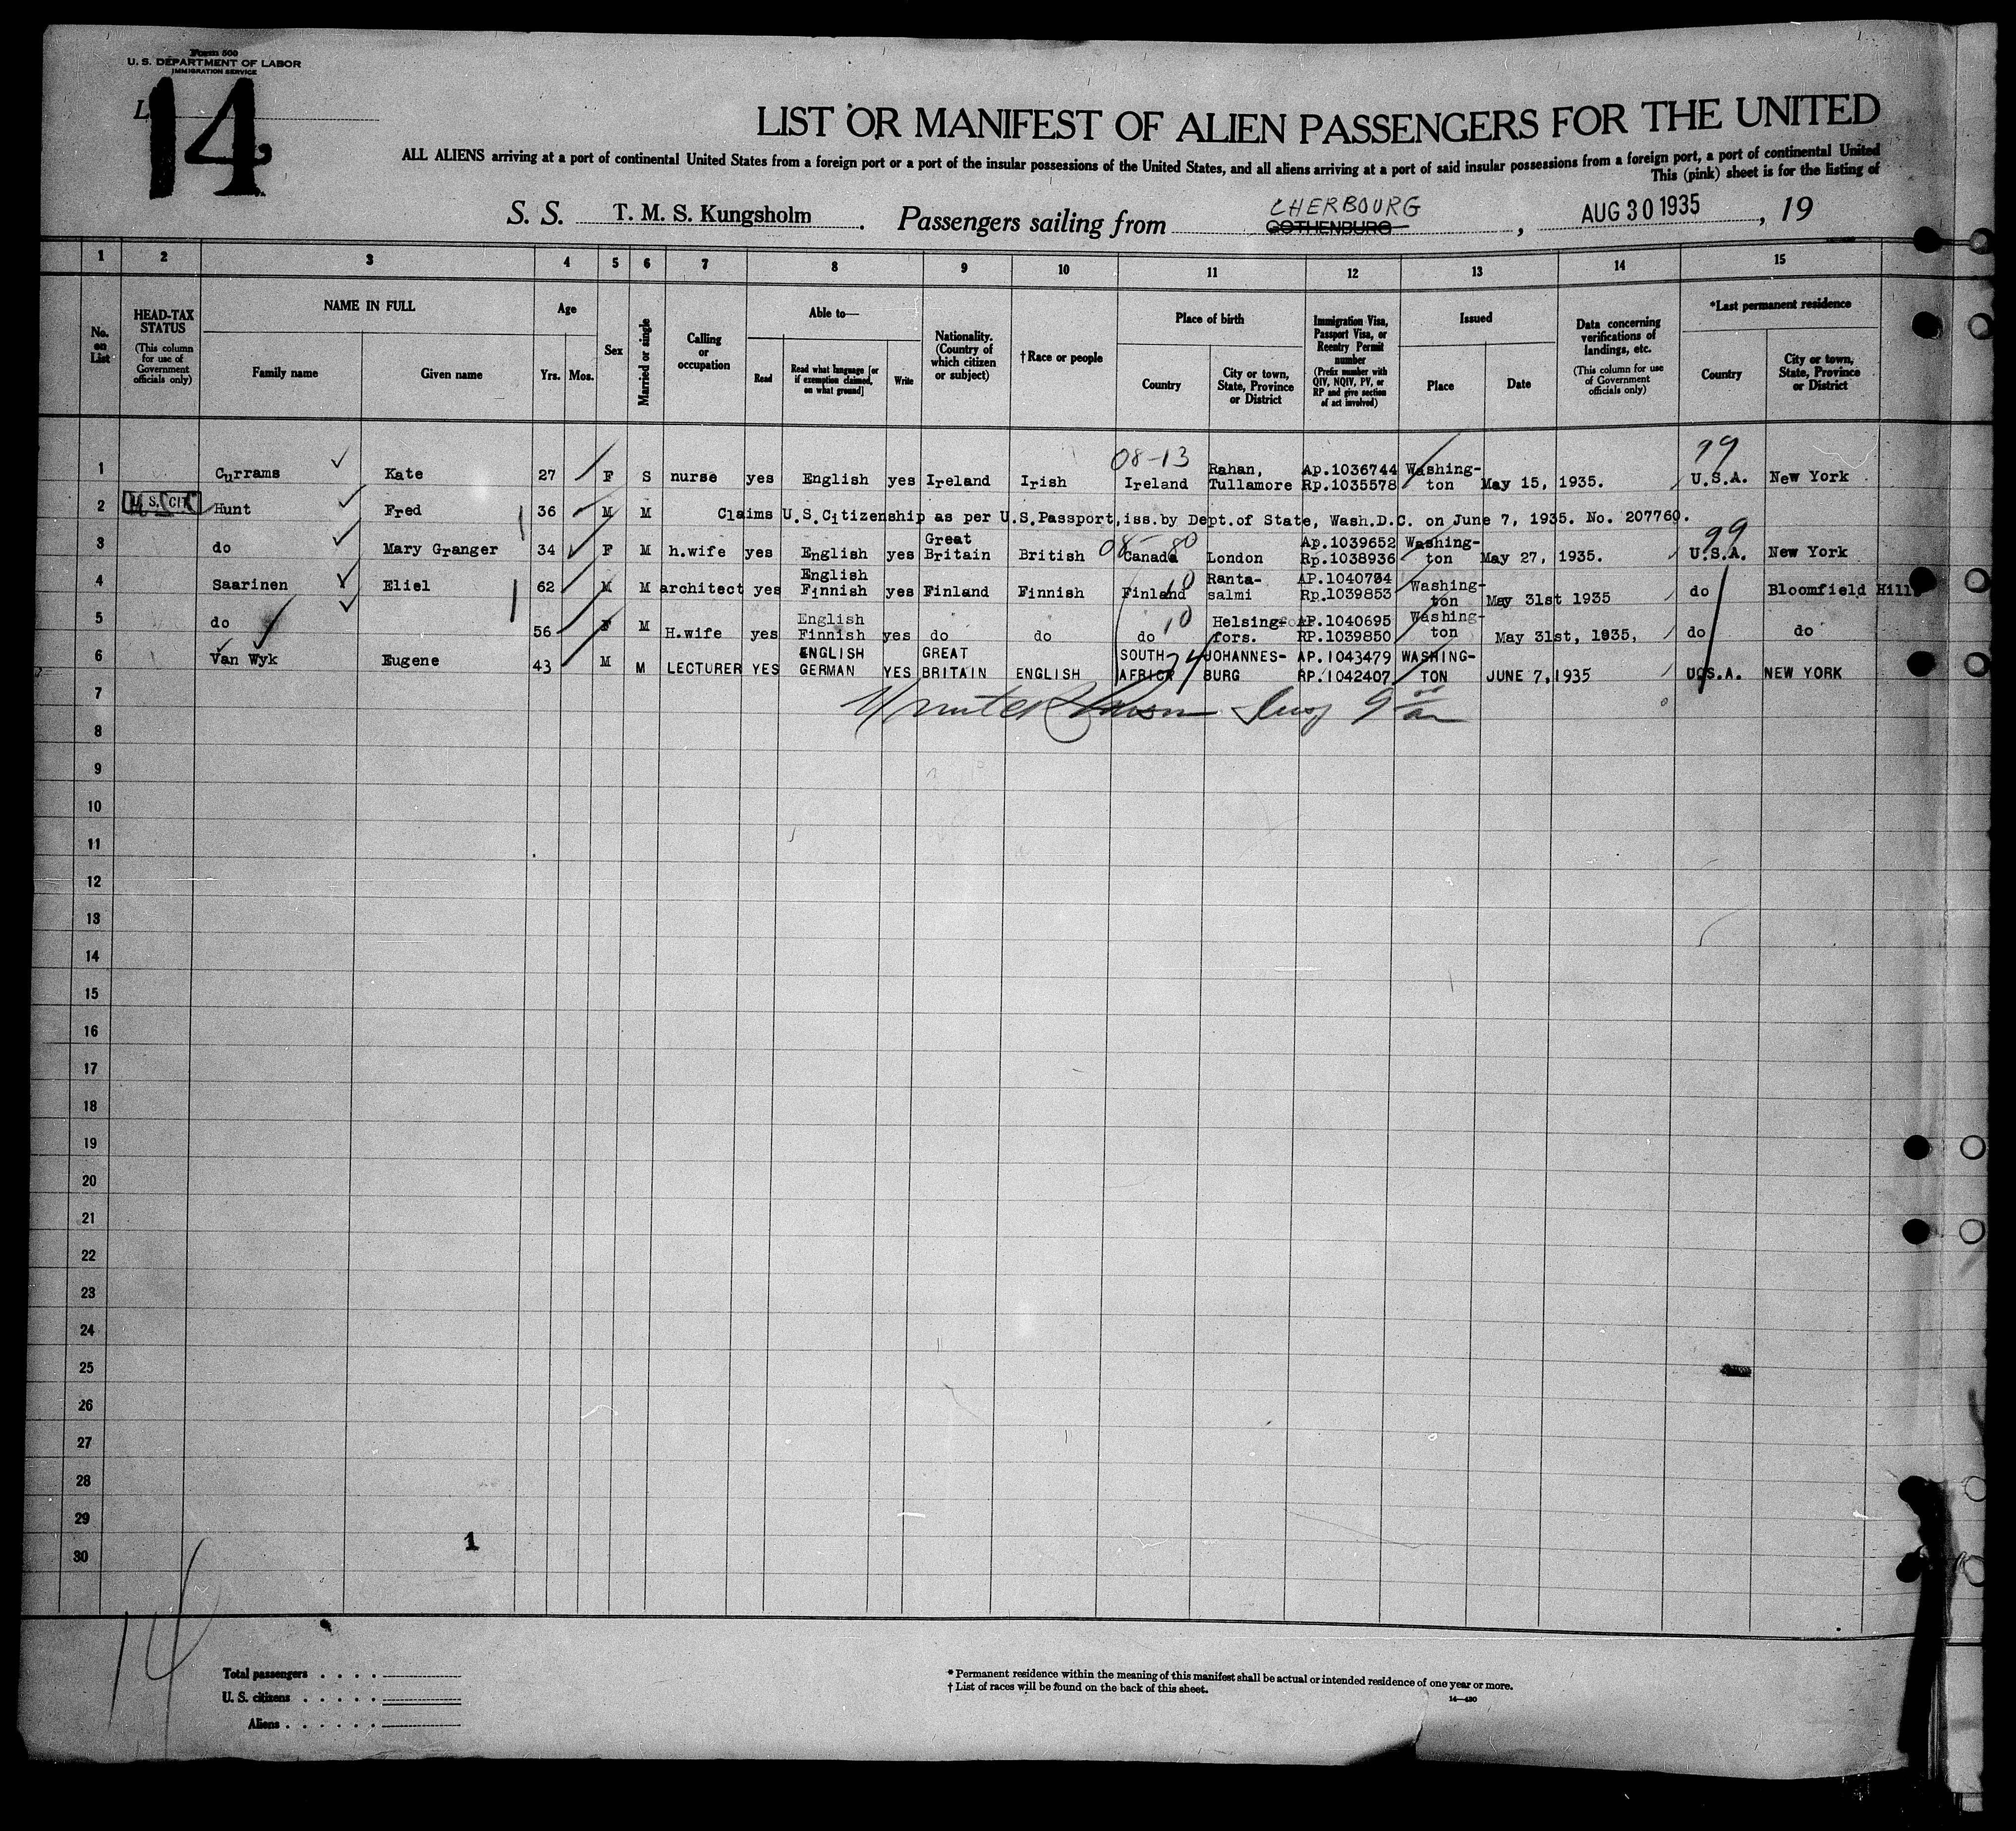 Form 500
U. S. DEPARTMENT OF LABOR
IMMIGRATION SERVICE
L
14
LIST OR MANIFEST OF ALIEN PASSENGERS FOR THE UNITED
ALL ALIENS arriving at a port of continental United States from a foreign port or a port of the insular possessions of the United States, and all aliens arriving at a port of said insular possessions from a foreign port, a port of continental United
This (pink) sheet is for the listing of
S. S. T. M. S. Kungsholm. Passengers sailing from CHERBOURG GOTHENBURG, AUG 30 1935, 19
1 2 3 4 5 6 7 8 9 10 11 12 13 14 15
No. on List
HEAD-TAX STATUS
(This column for use of Government officials only)
NAME IN FULL
Family name
Given name
Age
Yrs. Mos.
Sex
Married or single
Calling or occupation
Able to—
Read
Read what language [or if exemption claimed, on what ground]
Write
Nationality. (Country of which citizen or subject)
†Race or people
Place of birth
Country
City or town, State, Province or District
Immigration Visa, Passport Visa, or Reentry Permit number
(Prefix number with QIV, NQIV, PV, or RP and give section of act involved)
Issued
Place
Date
Data concerning verifications of landings, etc.
(This column for use of Government officials only)
*Last permanent residence
Country
City or town, State, Province or District
08-13 99
1 Currams Kate 27 F S nurse yes English yes Ireland Irish Ireland Rahan, Tullamore Ap.1036744 Rp.1035578 Washington May 15, 1935. U.S.A. New York
2 U.S. CIT Hunt Fred 36 M M Claims U.S.Citizenship as per U.S.Passport,iss.by Dept.of State, Wash.D.C. on June 7, 1935. No. 207760.
08-80 99
3 do Mary Granger 34 F M h.wife yes English yes Great Britain British Canada London Ap.1039652 Rp.1038936 Washington May 27, 1935. U.S.A. New York
4 Saarinen Eliel 62 M M architect yes English Finnish yes Finland Finnish Finland 10 Rantasalmi Rp.1039853 Washington May 31st 1935 do Bloomfield Hill
5 do 56 F M H.wife yes English Finnish yes do do do 10 Helsingfors. AP.1040695 RP.1039850 Washington May 31st, 1935, do do
6 Van Wyk Eugene 43 M M LECTURER YES ENGLISH GERMAN YES GREAT BRITAIN ENGLISH SOUTH AFRICA 24 JOHANNESBURG AP.1043479 RP.1042407 WASHINGTON JUNE 7,1935 U.S.A. NEW YORK
7
8
9
10
11
12
13
14
15
16
17
18
19
20
21
22
23
24
25
26
27
28
29
30
1
14
Total passengers
U. S. citizens
Aliens
* Permanent residence within the meaning of this manifest shall be actual or intended residence of one year or more.
† List of races will be found on the back of this sheet.
14—430